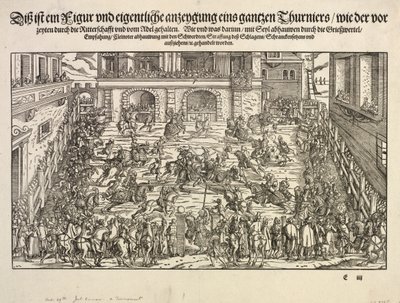 Diß ist ein Figur vnd eigentliche anzeygung eins gantzen Thurniers / wie der vor
zeyten durch die Ritterschafft vnd vom Adel gehalten. Wie vnd was darinn / mit Seyl abhauwen durch die Grießwertel /
Empfahung / Kleinoter abhauwung mit den Schwerdten / Straffung deß Schlagens / Schranckensetzens vnd
außziehens &c. gehandelt worden.